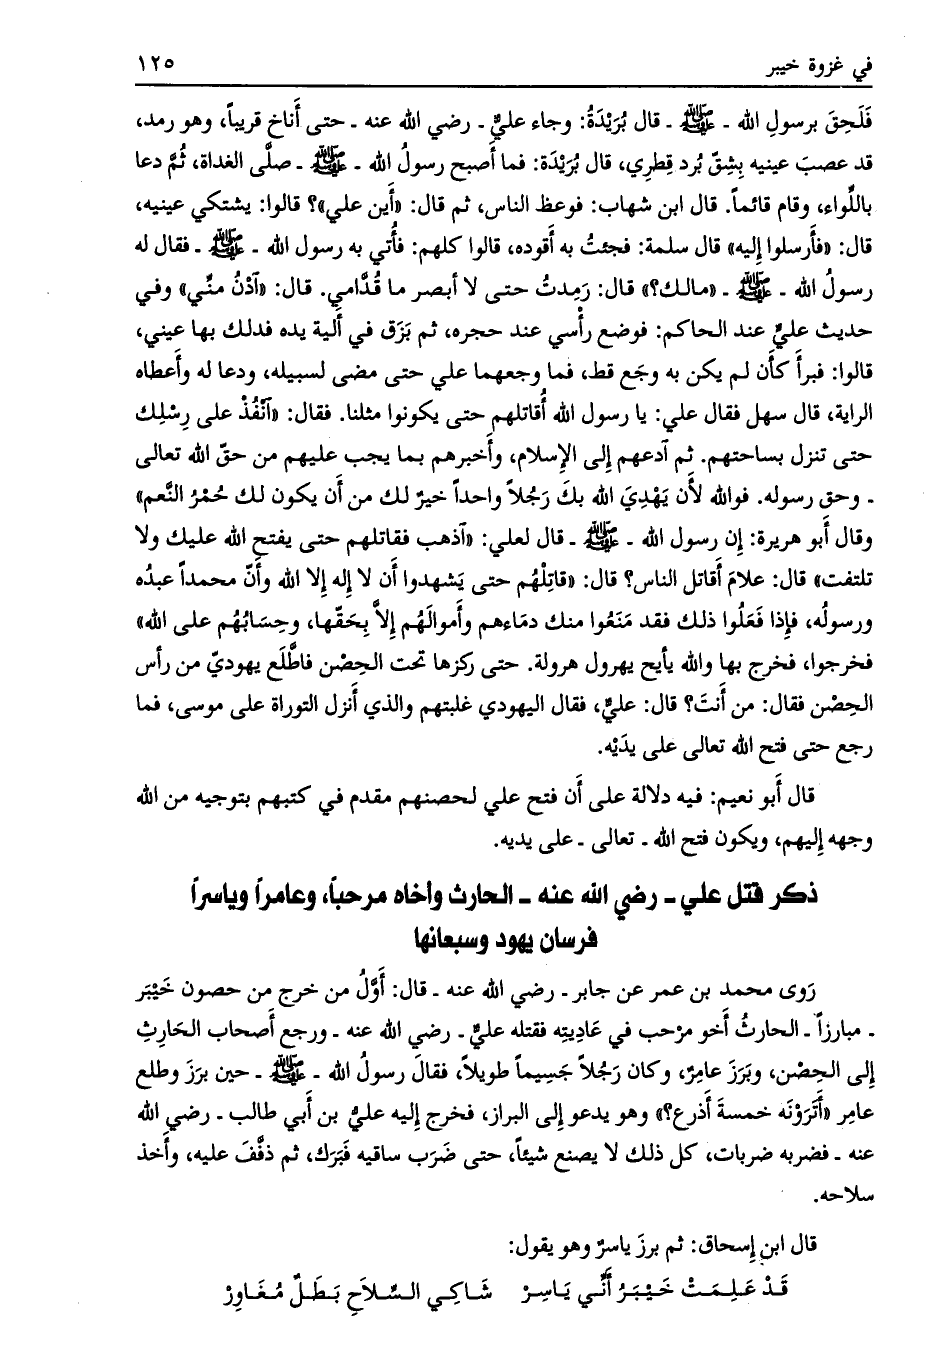 في غزوة خيبر ١٢٥
فَلَحِقَ برسولِ الله ـ ﷺ ـ قال بُرَيْدَةُ: وجاء عليٌّ ـ رضي الله عنه ـ حتى أَناخ قريباً، وهو رمد،
قد عصبَ عينيه بِشِقّ بُرد قِطرِي، قال بُرَيْدَة: فما أَصبح رسولُ الله ـ ﷺ ـ صلَّى الغداة، ثُمَّ دعا
باللِّواء، وقام قائماً. قال ابن شهاب: فوعظ الناس، ثم قال: «أَين علي»؟ قالوا: يشتكي عينيه،
قال: «فأَرسلوا إِليه» قال سلمة: فجئتُ به أَقوده، قالوا كلهم: فأُتي به رسول الله ـ ﷺ ـ فقال له
رسولُ الله ـ ﷺ ـ «مالك؟» قال: رَمِدتُ حتى لا أَبصر ما قُدَّامي. قال: «آدْنُ منِّي» وفي
حديث عليٍّ عند الحاكم: فوضع رأْسي عند حجره، ثم بَزَق في أَلية يده فدلك بها عيني،
قالوا: فبرأَ كأَن لم يكن به وجَع قط، فما وجعهما علي حتى مضى لسبيله، ودعا له وأَعطاه
الراية، قال سهل فقال علي: يا رسول الله أُقاتلهم حتى يكونوا مثلنا. فقال: «آنْفُذْ على رِسْلِك
حتى تنزل بساحتهم. ثم آدعهم إِلى الإِسلام، وأَخبرهم بما يجب عليهم من حقّ الله تعالى
ـ وحق رسوله. فوالله لأَن يَهْدِيَ الله بكَ رَجُلاً واحداً خيرٌ لك من أَن يكون لك حُمْرُ النَّعم»
وقال أَبو هريرة: إِن رسول الله ـ ﷺ ـ قال لعلي: «آذهب فقاتلهم حتى يفتح الله عليك ولا
تلتفت» قال: علامَ أَقاتل الناس؟ قال: «قاتِلْهُم حتى يَشهدوا أَن لا إِله إِلا الله وأَنّ محمداً عبدُه
ورسولُه، فإِذا فَعَلُوا ذلك فقد مَنَعُوا منك دمَاءهم وأَموالَهُم إِلاَّ بِحَقّها، وحِسَابُهُم على الله»
فخرجوا، فخرج بها والله يأيح يهرول هرولة. حتى ركزها تحت الحِصْن فاطَّلَع يهوديّ من رأس
الحِصْن فقال: من أَنتَ؟ قال: عليٌّ، فقال اليهودي غلبتهم والذي أَنزل التوراة على موسى، فما
رجع حتى فتح الله تعالى على يدَيْه.
قال أَبو نعيم: فيه دلالة على أَن فتح علي لحصنهم مقدم في كتبهم بتوجيه من الله
وجهه إِليهم، ويكون فتح الله ـ تعالى ـ على يديه.
ذكر قتل علي ـ رضي الله عنه ـ الحارث وأخاه مرحباً، وعامراً وياسراً
فرسان يهود وسبعانها
رَوى محمد بن عمر عن جابر ـ رضي الله عنه ـ قال: أَوَّلُ من خرج من حصون خَيْبَر
ـ مبارزاً ـ الحارثُ أَخو مرْحب في عَادِيتِه فقتله عليٌّ ـ رضي الله عنه ـ ورجع أَصحاب الحَارِثِ
إِلى الحِصْن، وبَرَز عامِرٌ، وكان رَجُلاً جَسِيماً طويلاً، فقالَ رسولُ الله ـ ﷺ ـ حين برَز وطلع
عامِر «أَتَرَوْنَه خمسةَ أَذرع؟» وهو يدعو إِلى البراز، فخرج إِليه عليُّ بن أَبي طالب ـ رضي الله
عنه ـ فضربه ضربات، كل ذلك لا يصنع شيئاً، حتى ضَرَب ساقيه فَبَرَك، ثم ذفَّفَ عليه، وأَخذ
سلاحه.
قال ابن إِسحاق: ثم برزَ ياسرٌ وهو يقول:
قَدْ عَلِمَتْ خَيْبَرُ أَنِّي يَاسِرْ شَاكِي السِّلاَحِ بَطَلٌ مُغَاوِرْ